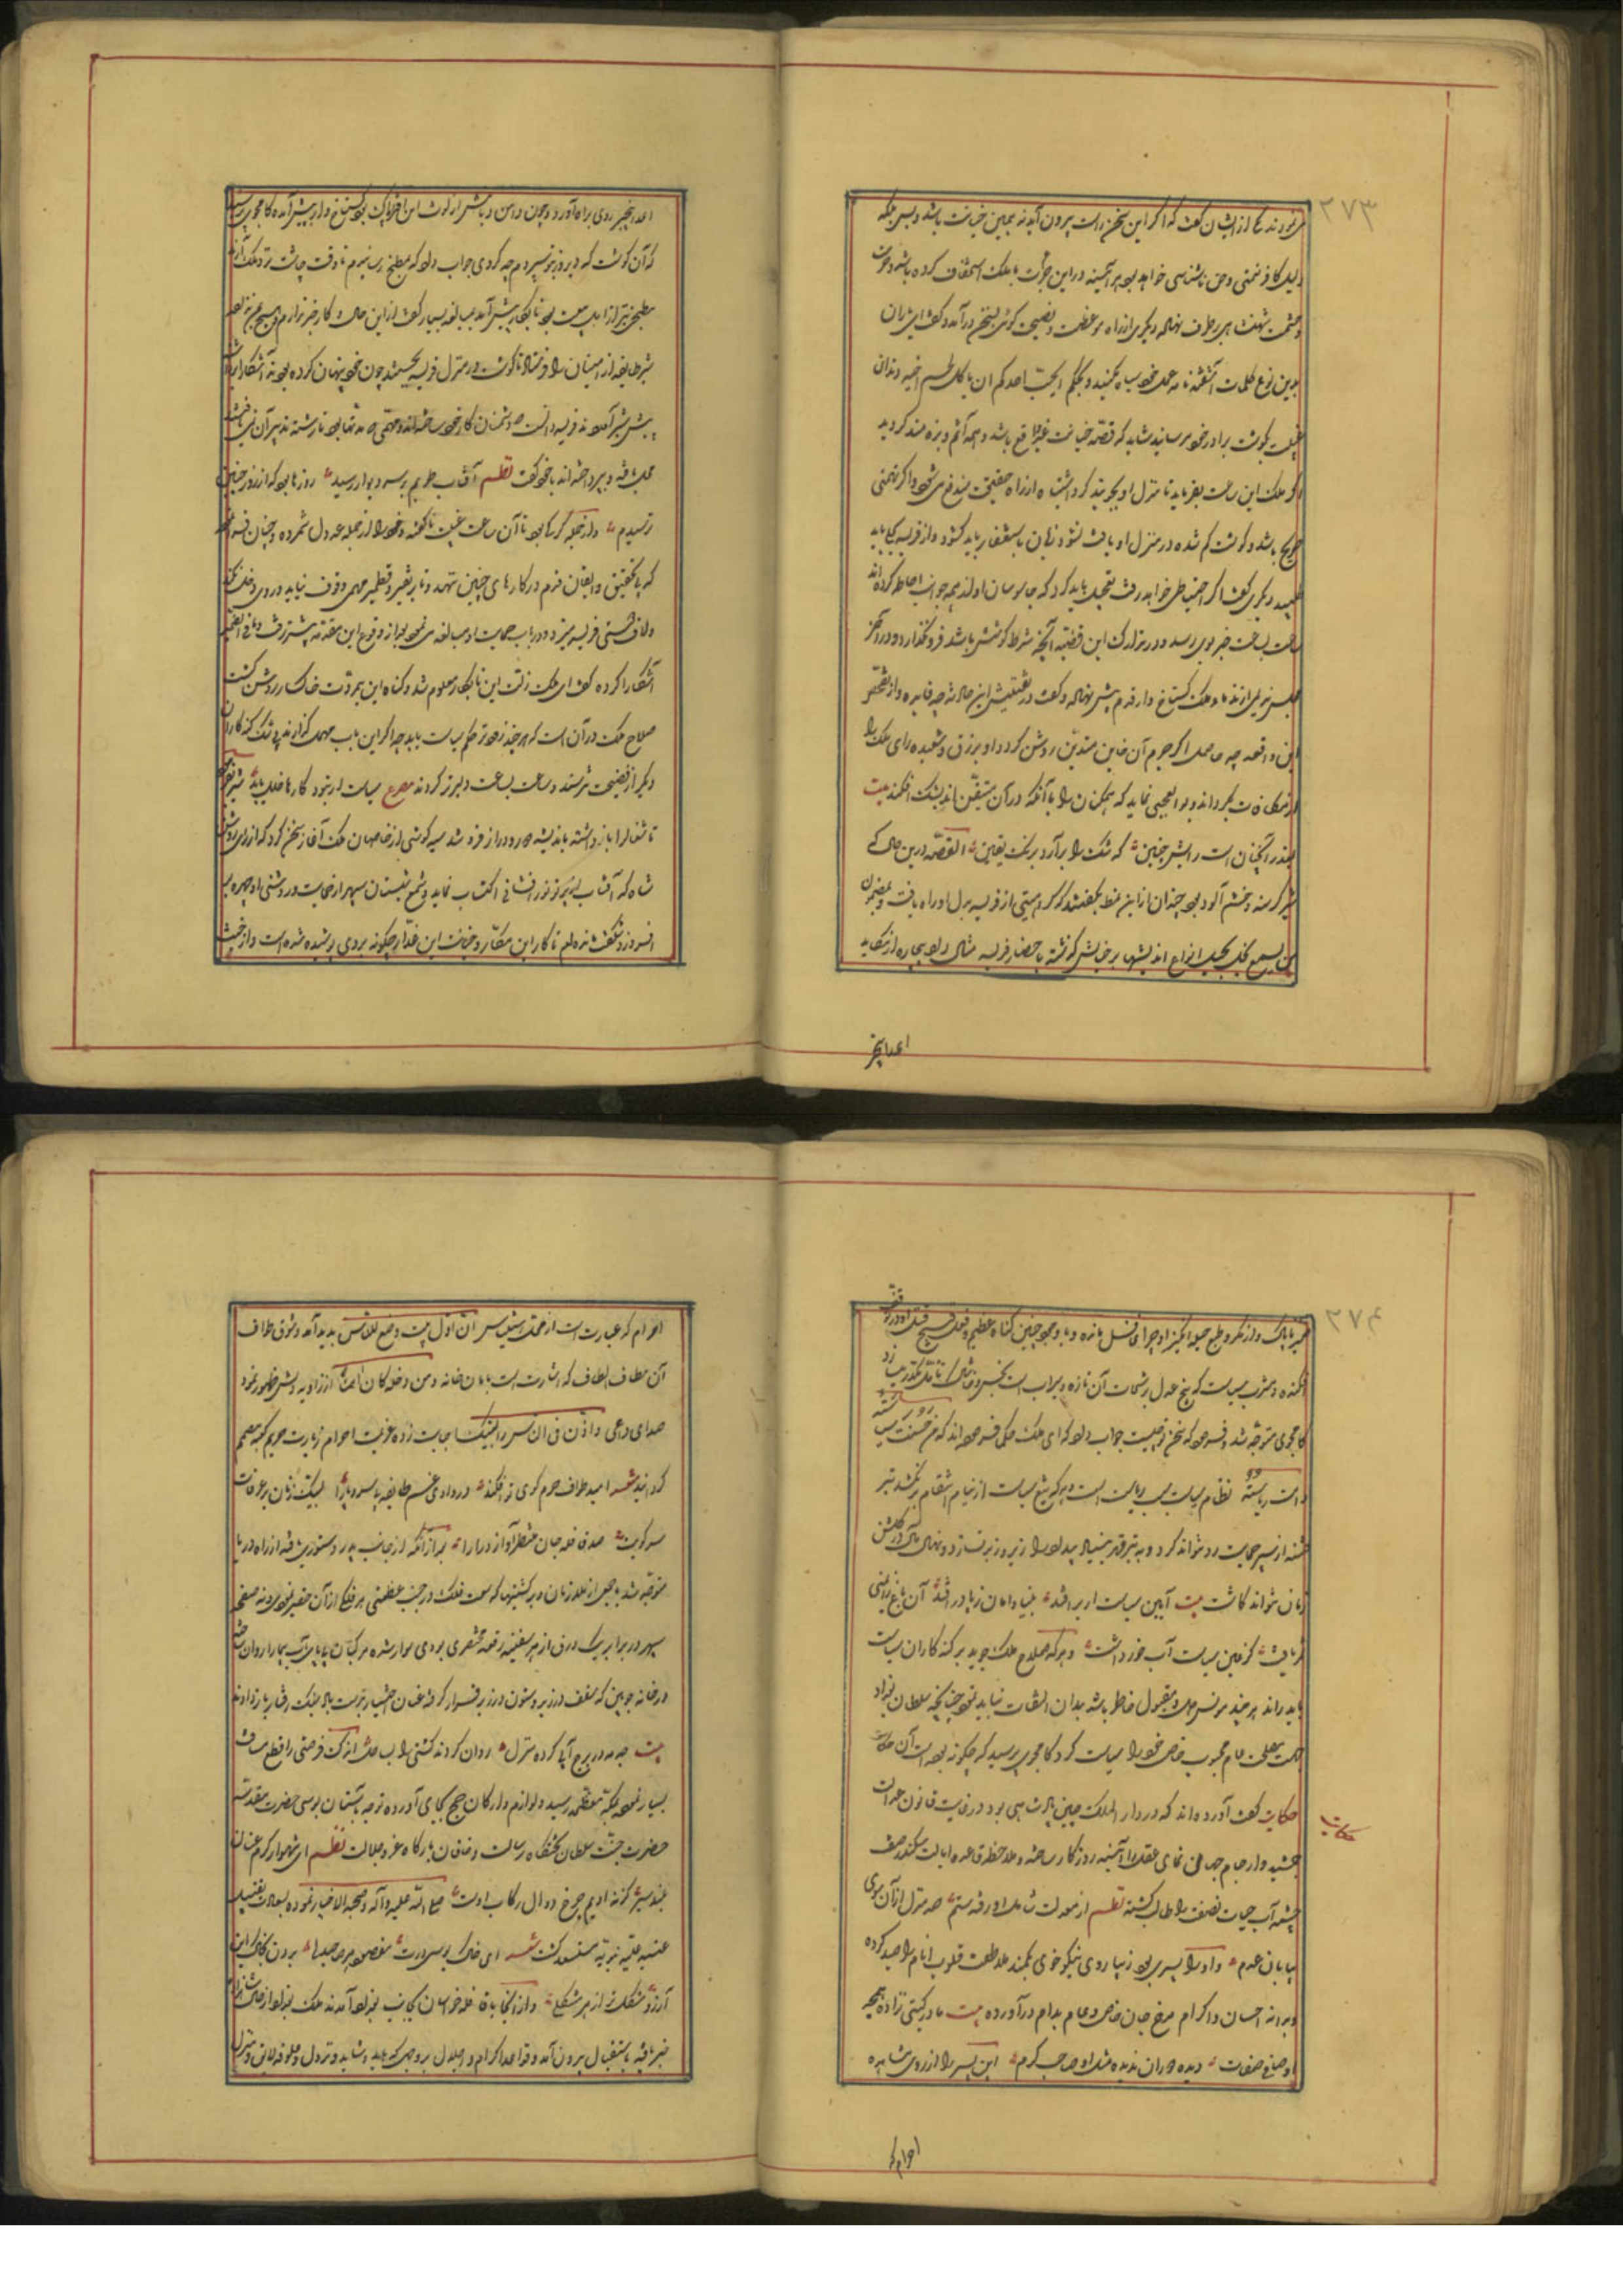 ۲۷۳
می‌نمودند یکی از ایشان گفت که اگر این سخن راست بیرون آید نه همین خیانت باشد و بس بلکه
دلیل کافر نعمتی و حق ناشناسی خواهد بود هر آینه در این جرأت با ملک استخفاف کرده باشد و حرمت
و حشمت شهنشاهی بر طرف نهاده دیگری از راه موعظت و نصیحت گوئی بسخن درآمد و گفت ای یاران
بدین نوع کلمات آشفته نامه عمل خود سیاه مکنید و بحکم ایحب احدکم ان یاکل لحم اخیه دندان
غیبت بگوشت برادر خود مرسانید شاید که قصه خیانت غیر واقع باشد و همه آثم و بزه‌مند گردید
اگر ملک این ساعت بفرماید تا منزل او بجویند گرد اشتباه از راه حقیقت مندفع می‌شود و اگر تهمتی
صریح باشد و گوشت گم شده در منزل او یافت نشود زبان باستغفار باید گشود و از فریسه بحلی باید
طلبید دیگری گفت اگر احتیاطی خواهد رفت تعجیل باید کرد که جاسوسان او از همه جوانب احاطه کرده‌اند
ساعت بساعت خبر بوی رسد و در تدارک این قضیه آنچه شرط کوشش باشد فرو نگذارد و در آخر
مجلس یکی از ندما و ملک گستاخ وار قدم پیش نهاده و گفت در تفتیش این حادثه چه فایده و از تفحص
این واقعه چه حاصل اگر جرم آن خاین متدین روشن گردد او بزرق و شعبده رای ملک را
از مکافات بگرداند و بوالعجبی نماید که همگنان را با آنکه در آن متیقن‌اند بشک افکند بیت
عذر آنچنان است رایش چنین که شک را برآرد برنگ یقین القصه درین حال که
شیر گرسنه و خشم آلود بود چندان از این نمط بگفتند که کراهیتی از فریسه بدل او راه یافت و بمضمون
من یسمع یخل یخیل انواع اندیشها بر خاطرش گذشته باحضار فریسه مثال داد بیچاره از مکاید
اعدا بیخبر
اعدا بیخبر روی براه آورد و چون دامن دیانتش از لوث این افترا پاک بود گستاخ وار پیش آمد کامجوی پرسید
که آن گوشت که دیروز بتو سپردم چه کردی جواب داد که بمطبخ رسانیدم تا وقت چاشت نزد ملک آرند
مطبخی نیز از اهل بیعت بود بانکار پیش آمد بمبالغه بسیار گفت از این حال و کار خبر ندارم
شیر طایفه از امینان را فرستاد تا گوشت در منزل فریسه بجستند چون خود پنهان کرده بودند آشکارا
پیش شیر آوردند فریسه دانست که دشمنان کار خود ساخته‌اند و مهمی که مدتها بود تا رشته تدبیر آن می‌یافتند
بعمل یافته و پرداخته‌اند با خود گفت نظم آفتاب عمرم بسر دیوار رسید روزها بود که از روز چنین
ترسیدم و از جمله گرگی بود تا آن ساعت غیبت ناگفته و خود را از جمله عدول شمرده
که با تحقیق و ایقان قدم در کارهای چنین ننهد و تا بر نقیر و قطمیر مهمی وقوف نیابد در وی دخل نکند
و لاف دوستی فریسه میزد و در باب حمایت او مبالغه می‌نمود بعد از وقوع این مقدمه پیشتر رفت و مافی الضمیر
آشکارا کرده گفت ای ملک زلت این نابکار معلوم شد و گناه این بیمروت خاکسار روشن گشت
صلاح ملک در آن است که هر چند زودتر حکم سیاست باید چه اگر این باب مهمل گذارند
دیگر از فضیحت نترسند و ساعت بساعت دلیرتر گردند مصرع سیاست ار نبود کارها خلل یابد شیر بفرمود
تا شغال را باز داشته باندیشه دور و دراز فرو شد سیه گوشی از خاصان ملک آغاز سخن کرد که از رای روشن
شاه که آفتاب از پرتو نور افشانی اکتساب نماید و شمع شبستان سپهر از خیالت در روشنی او چهره
افروزد شگفت مانده‌ام تا کار این مکار و خیانت این غدار چگونه بر وی پوشیده شده است و از خبث
۲۷۴
ضمیر ناپاک و از مکر و طبع حیله انگیز او چرا غافل مانده و با وجود چنین گناه عظیم و فعل قبیح قتل او در توقف
افکنده و مشرب سیاست که بیخ عدل برشحات آن تازه و سیراب است بخس و خاشاک تامل مکدر میسازد
کامجوی متوجه شد و فرمود که سخن تو چیست جواب داد که ای ملک حکما فرموده‌اند که من حسنت سیاسته
دامت ریاسته نظام سیاست بی ریاست است و هر که تیغ سیاست از نیام انتقام برنکشد تیر
فتنه از سپر حمایت رد نتواند کرد و به تبر قهر بنیاد بیداد را زیر و زبر نسازد و نهال آمال در گلشن
زمان نتواند کاشت بیت آیین سیاست ار بر افتد بنیاد امان ز پا در افتد آن باغ زمنی
که یافت کز عین سیاست آب خورد داشت و هر که صلاح ملک جوید بر گنه کاران سیاست
باید راند هر چند مونس دل و مقبول خاطر باشد بدان التفات نباید نمود چنانچه سلطان بغداد
جهت مصلحت عام محبوب خاص خود را سیاست کرد کامجوی پرسید که چگونه بوده است آن حکایت
حکایت
حکایت گفت آورده‌اند که در دار الملک چین پادشاهی بود در رعایت قانون عدالت
جمشید وار جام جهان نمای عقل را آیینه روزگار ساخته و ملاحظه قاعده ایالت سکندر صفت
چشمه آب حیات نصفت را طالب گشته نظم از معدلت شامل او رفته ستم صد منزل از آن سوی
بیابان عدم و او را پسری بود زیبا روی نیکو خوی بکمند ملاطفت قلوب انام را صید کرده
و بدانه احسان و اکرام مرغ جان خاص و عام بدام درآورده بیت مادر گیتی نزاده همچو
او صافی صفات دیده دوران ندیده مثل او صاحب کرم این پسر را از روی مشاهده
احرام که
احرام که عبارت است از محقق سر ان اول بیت وضع للناس پدید آمد و شوق طواف
آن مطاف الطاف که اشارت است بامان خانه و من دخله کان امنا از زاویه دلش ظهور نمود
صدای داعی و اذن فی الناس را لبیک اجابت زده عزیمت احرام زیارت حریم کعبه مصمم
گردانید شعر امید طواف حرم کوی تو افکند در وادی غم طایفه بی سر و پا را لبیک زنان بر عرفات
سر کویت صد قافله جان منتظر آواز درا را بعد از آنکه از جانب پدر دستوری یافته از راه دریا
متوجه شد با جمعی از ملازمان در کشتیها که سعت فلک در جنب عظمتش هر فلکی از آن حقیر نمودی و نه صفحه
سپهر در برابر یک ورق از هر سفینه رقعه مختصری بودی سوار شده مرکبان بی پای آب پیما را روان ساختند
در خانه چوبین که سقف در زیر و ستون در زبر قرار گرفته عنان اختیار بدست باد سبک رفتار باز دادند
بیت چه مه در برج آبی کرده منزل روان کردند کشتی را بساحل اندک فرصتی را قطع مسافت
بسیار نموده بمکه معظمه رسید و لوازم و ارکان حج بجای آورده توجه باستان بوسی حضرت مقدسه
حضرت ختمی سلطان تختگاه رسالت و خاقان بارگاه عز و جلالت نظم ای شهسوار کرم عنان
بلند سیر کز نه ادیم چرخ دوال رکاب اوست صلی الله علیه و آله و صحبه الاخیار نموده بسعادت تقبیل
عتبه علیه نبویه مستسعد گشت شعر ای خاک بوسی درت مقصود هر صاحبدلی بردن بخاک این
آرزو مشکلتر از هر مشکلی و از آنجا با قافله خراسان بجانب بغداد آمدند ملک بغداد از حال شاهزاده
خبر یافته باستقبال بیرون آمد و قواعد اکرام و اجلال بر وجهی که باید و شاید و نزول و علوفه لایق و منزل